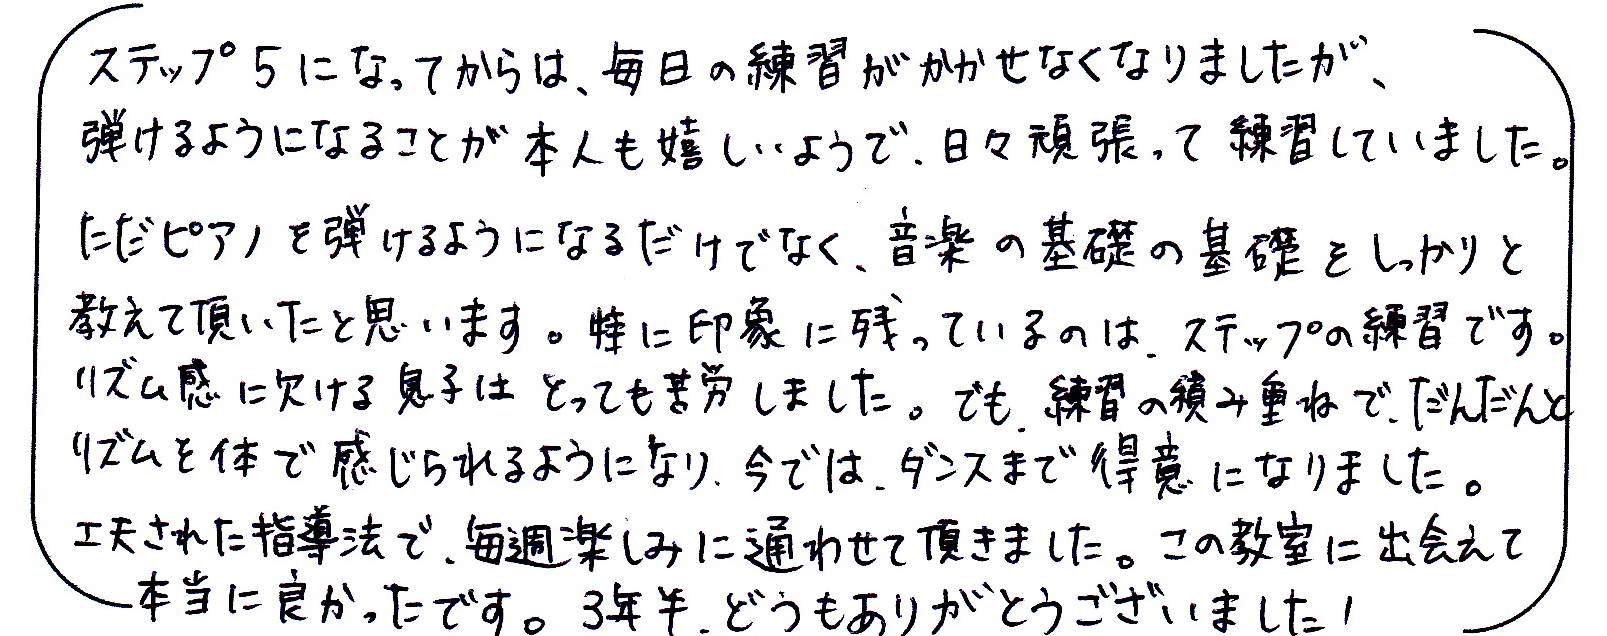 ステップ5になってからは、毎日の練習がかかせなくなりましたが、
弾けるようになることが本人も嬉しいようで、日々頑張って練習していました。
ただピアノを弾けるようになるだけでなく、音楽の基礎の基礎をしっかりと
教えて頂いたと思います。特に印象に残っているのは、ステップの練習です。
リズム感に欠ける息子はとっても苦労しました。でも、練習の積み重ねで、だんだんと
リズムを体で感じられるようになり、今では、ダンスまで得意になりました。
工夫された指導法で、毎週楽しみに通わせて頂きました。この教室に出会えて
本当に良かったです。3年半、どうもありがとうございました!